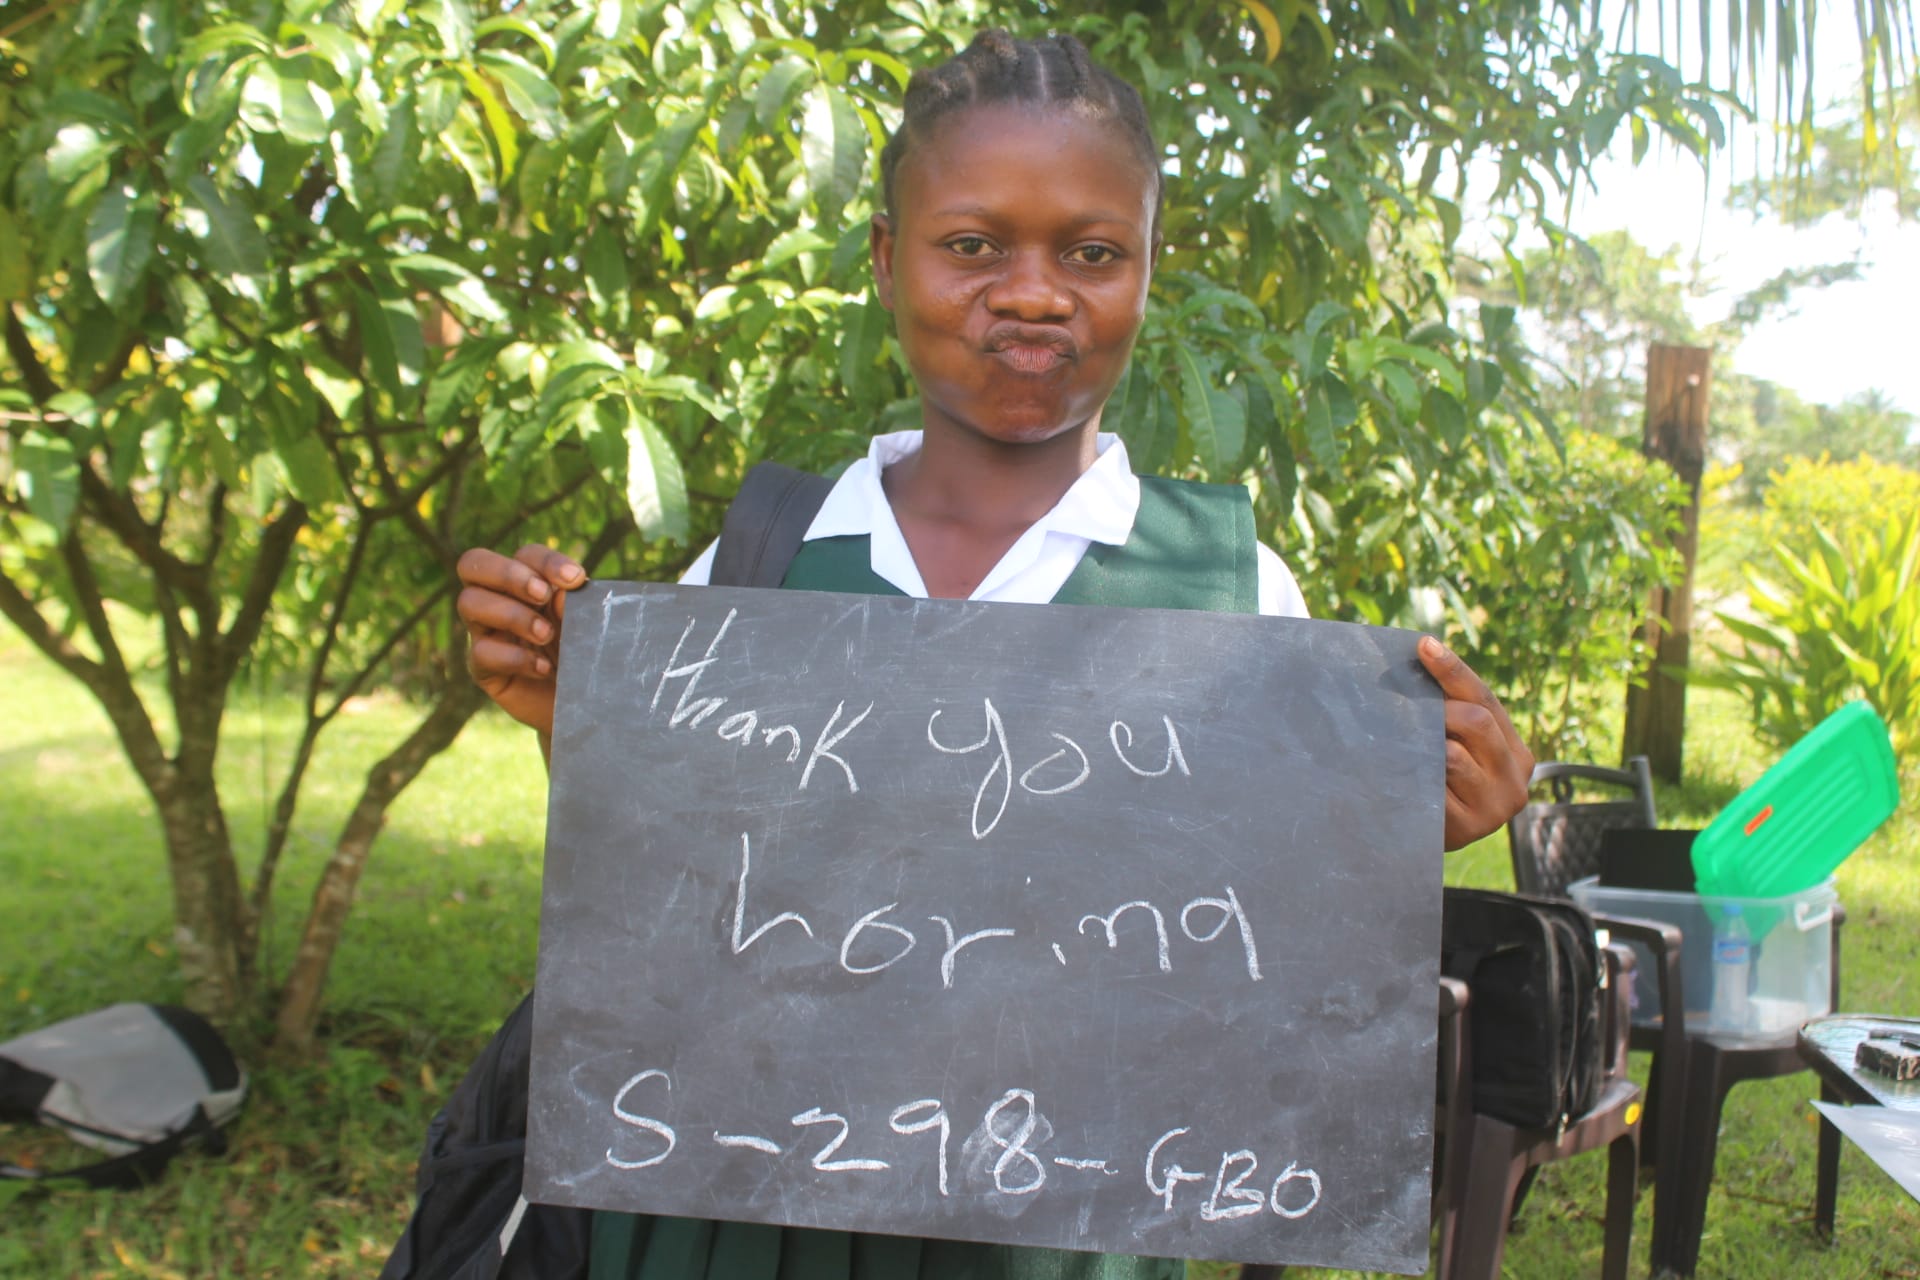 Thank you
horina
S-298-GBO